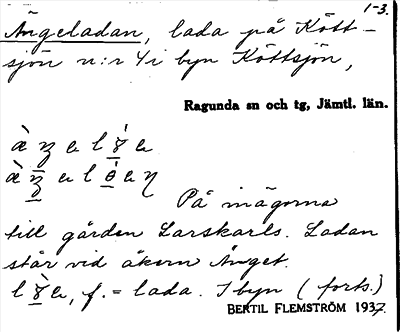 1-3.
Ängeladan, lada på Kött-
sjön n:r 4 i byn Köttsjön,
Ragunda sn och tg, Jämtl. län.
På inägorna
till gården Larskarls. Ladan
står vid åkern Änget.
f. = lada. I byn (forts.)
BERTIL FLEMSTRÖM 1937.